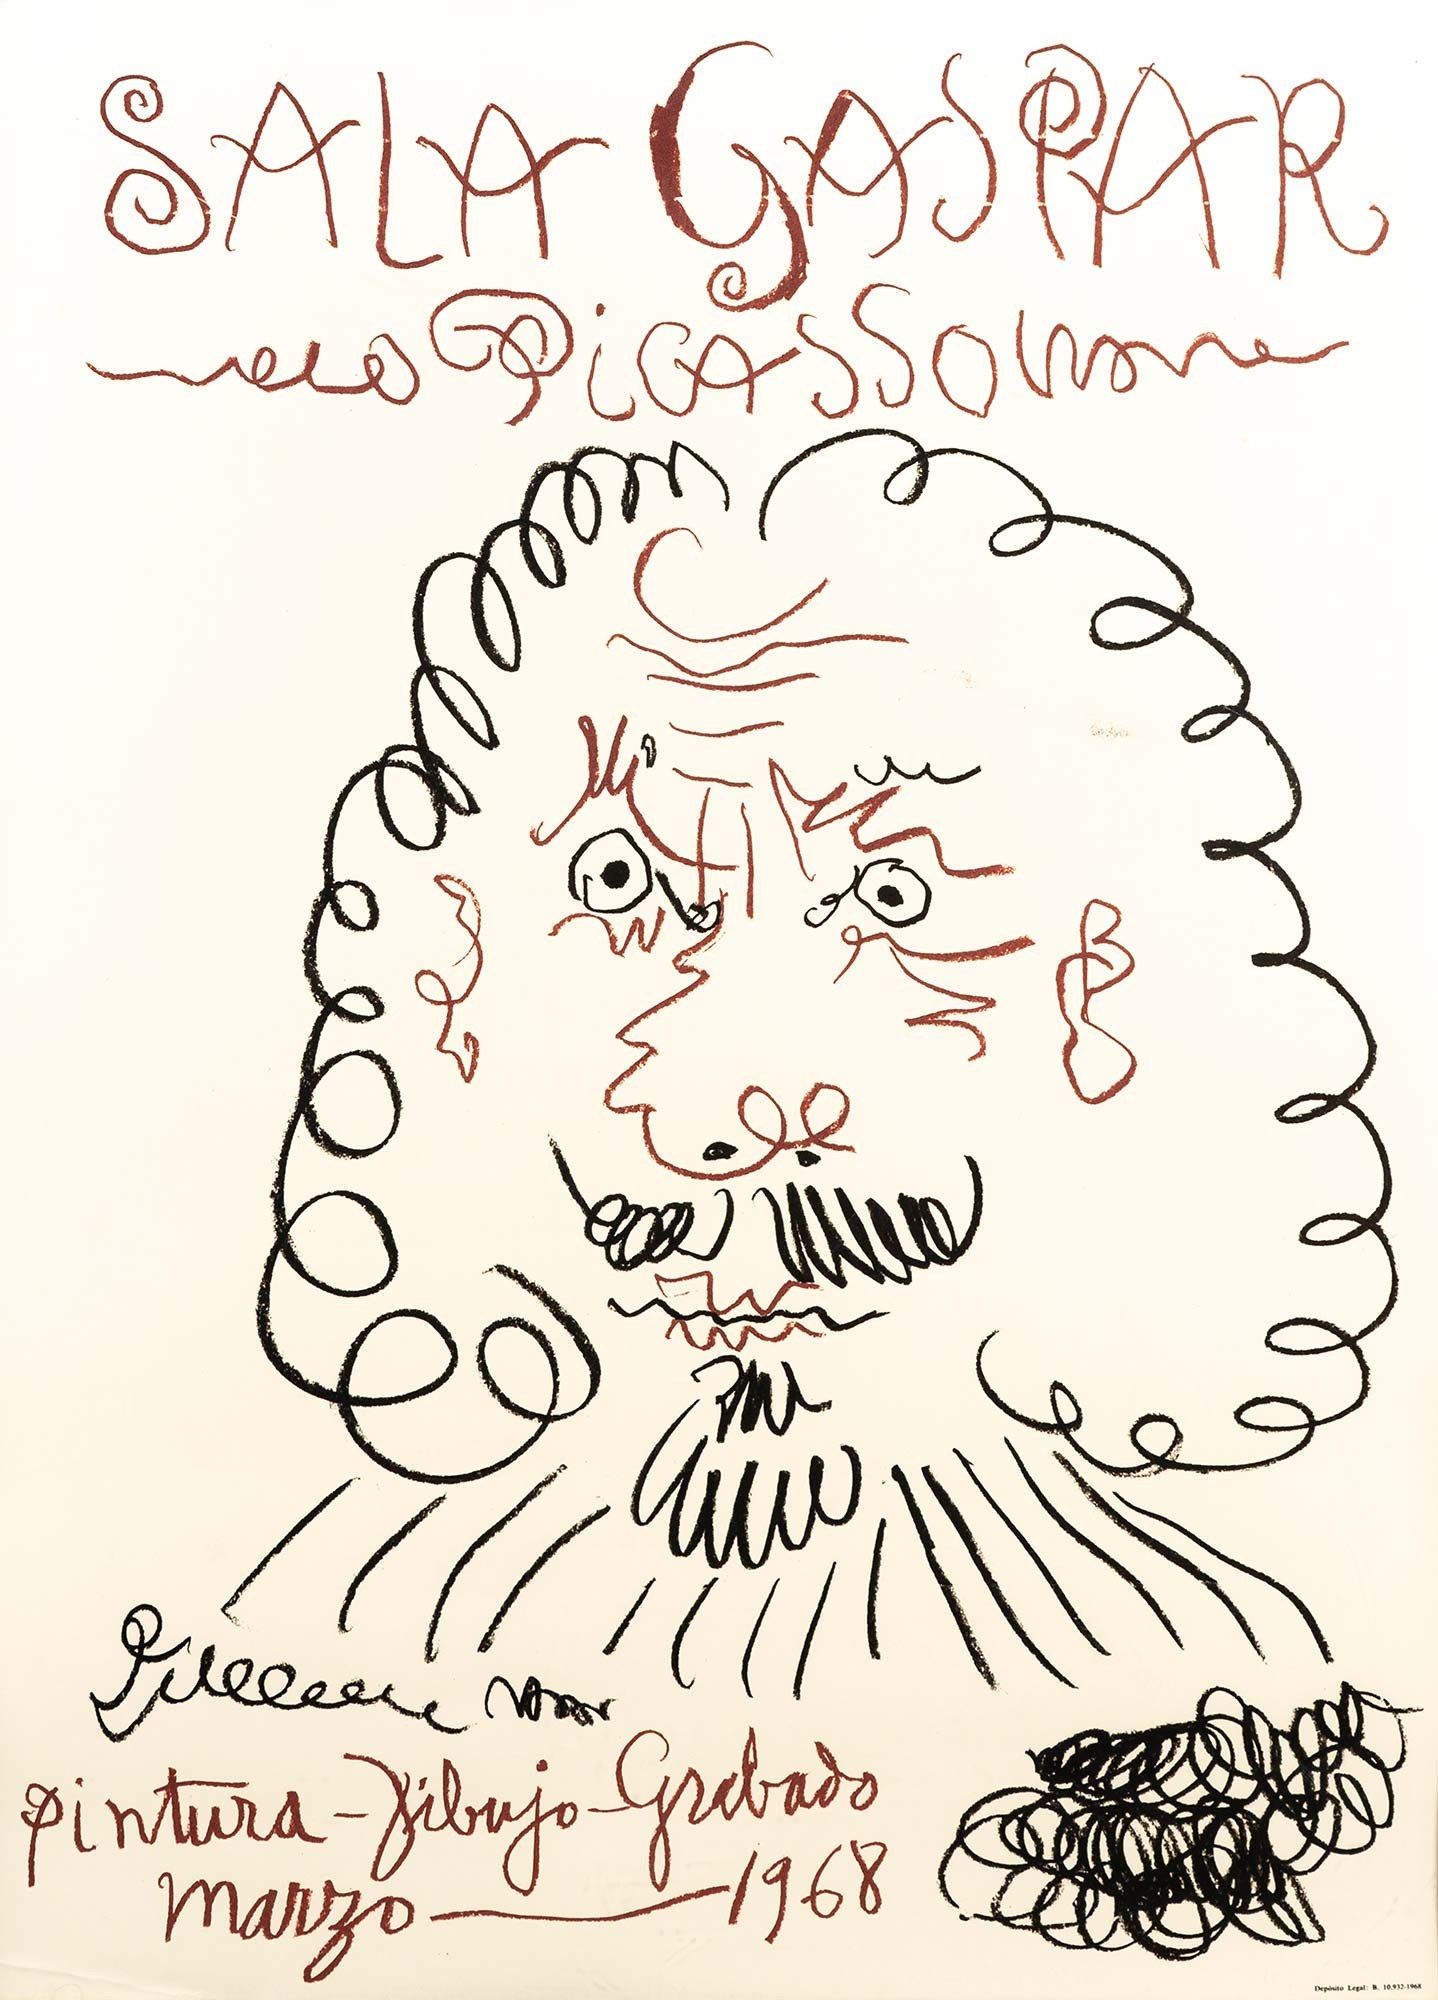 SALA GASPAR
PicASSO
pintura - Dibujo - Grabado
marzo — 1968
Depósito Legal: B. 10.932-1968